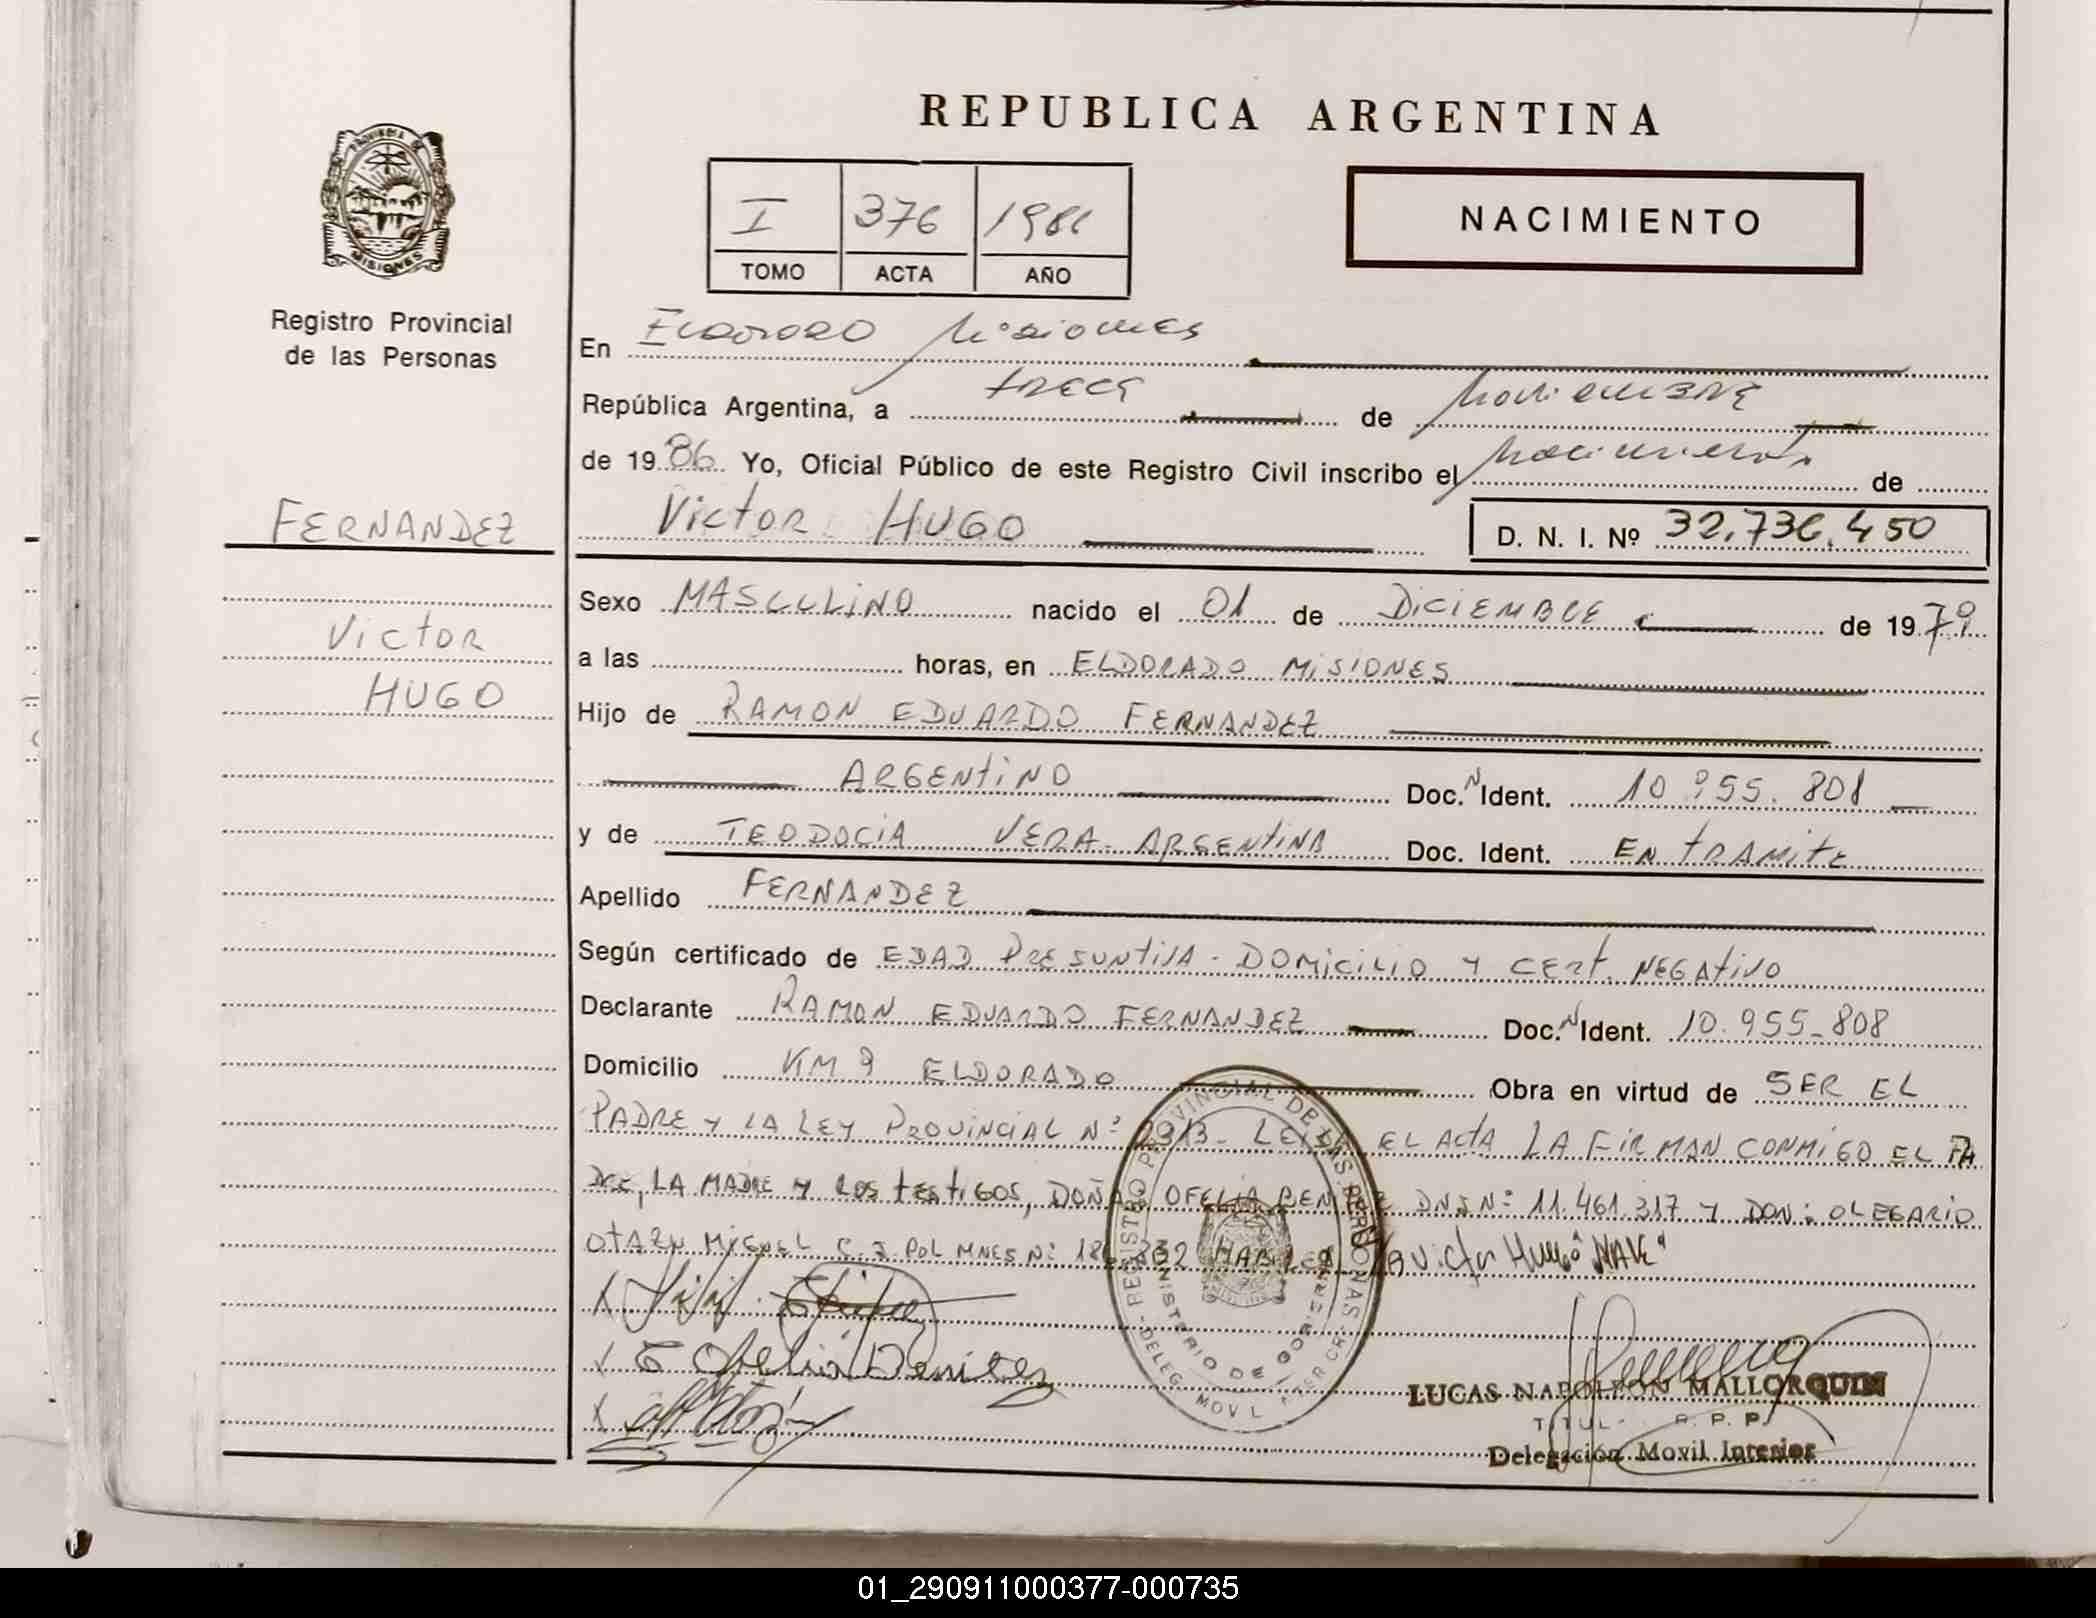 REPUBLICA ARGENTINA
PROVINCIA DE
MISIONES
Registro Provincial
de las Personas
I 376 1986
TOMO ACTA AÑO
NACIMIENTO
En Eldorado Misiones
República Argentina, a trece de Noviembre
de 1986 Yo, Oficial Público de este Registro Civil inscribo el Nacimiento de
Victor HUGO
D. N. I. Nº 32.736.450
FERNANDEZ
Victor
HUGO
Sexo MASCULINO nacido el 01 de DICIEMBRE de 1979
a las horas, en ELDORADO MISIONES
Hijo de RAMON EDUARDO FERNANDEZ
ARGENTINO Doc. N Ident. 10.955.808
y de TEODOCIA VERA- ARGENTINA Doc. Ident. EN TRAMITE
Apellido FERNANDEZ
Según certificado de EDAD PRESUNTIVA - DOMICILIO Y CERT. NEGATIVO
Declarante RAMON EDUARDO FERNANDEZ Doc. N Ident. 10.955-808
Domicilio KM 9 ELDORADO Obra en virtud de SER EL
PADRE Y LA LEY PROVINCIAL Nº LEIDA EL ACTA LA FIRMAN CONMIGO EL PA
DRE, LA MADRE Y LOS TESTIGOS, DOÑA OFELIA DNI Nº 11.461.317 Y DON: OLEGARIO
OTAZU MIGUEL C.I. POL MNES Nº Victor Hugo VALE"
Ofelia Benitez
REGISTRO PROVINCIAL DE LAS PERSONAS
MINISTERIO DE GOBIERNO
DELEG. MOVIL
LUCAS NAPOLEON MALLORQUIN
R. P. P.
Delegación Movil Interior
01_290911000377-000735